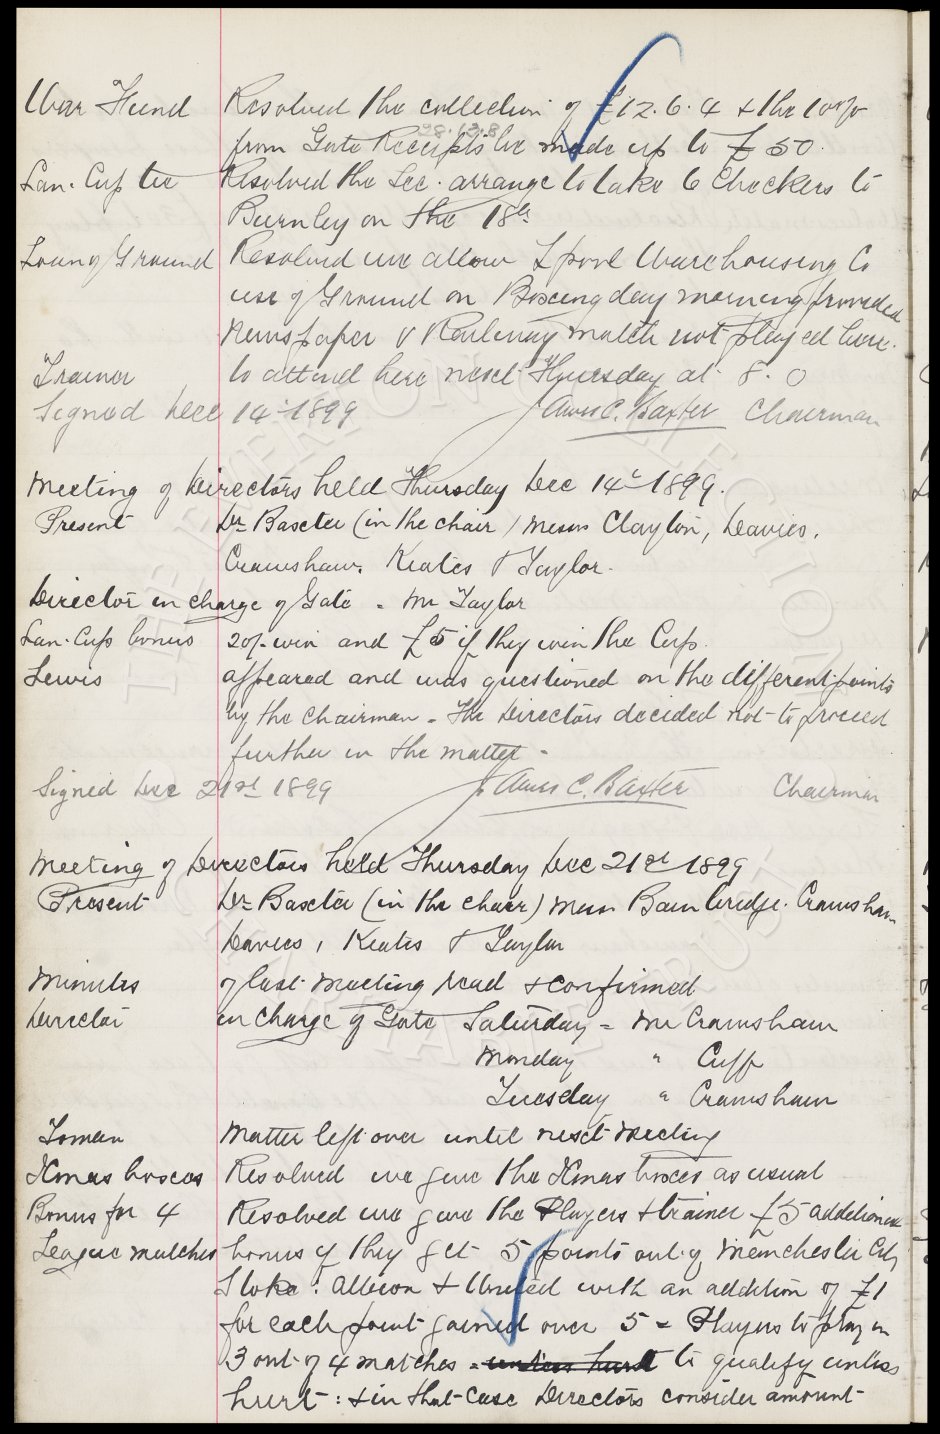 War Fund Resolved the collection of £12.6.4 & the 10%
28.13.8
from Gate Receipts be made up to £50.
Lan. Cup tie Resolved the Sec. arrange to take 6 Checkers to
Burnley on the 18th
Loan of Ground Resolved we allow Lpool Warehousing Co
use of Ground on Boxing day morning provided
Newspaper v Railway match not played here.
Trainer to attend here next Thursday at 8.0
Signed Dec 14th 1899 James C. Baxter Chairman
Meeting of Directors held Thursday Dec 14th 1899.
Present Dr Baxter (in the chair) Messrs Clayton, Davies,
Crawshaw, Keates & Taylor.
Director in charge of Gate - Mr Taylor
Lan. Cup bonus 20/- win and £5 if they win the Cup.
Lewis appeared and was questioned on the different points
by the Chairman - The Directors decided not to proceed
further in the matter -
Signed Dec 21st 1899 James C. Baxter Chairman
Meeting of Directors held Thursday Dec 21st 1899
Present Dr Baxter (in the chair) Messrs Bainbridge. Crawshaw
Davies, Keates & Taylor
Minutes of last Meeting read & confirmed
Director in charge of Gate Saturday = Mr Crawshaw
Monday " Cuff
Tuesday " Crawshaw
Toman Matter left over until next Meeting
Xmas boxes Resolved we give the Xmas boxes as usual
Bonus for 4 Resolved we give the Players & trainer £5 additional
League matches bonus if they get 5 points out of Manchester City
Stoke: Albion & United with an addition of £1
for each point gained over 5 - Players to play in
3 out of 4 matches - unless hurt to qualify unless
hurt: & in that case Directors consider amount